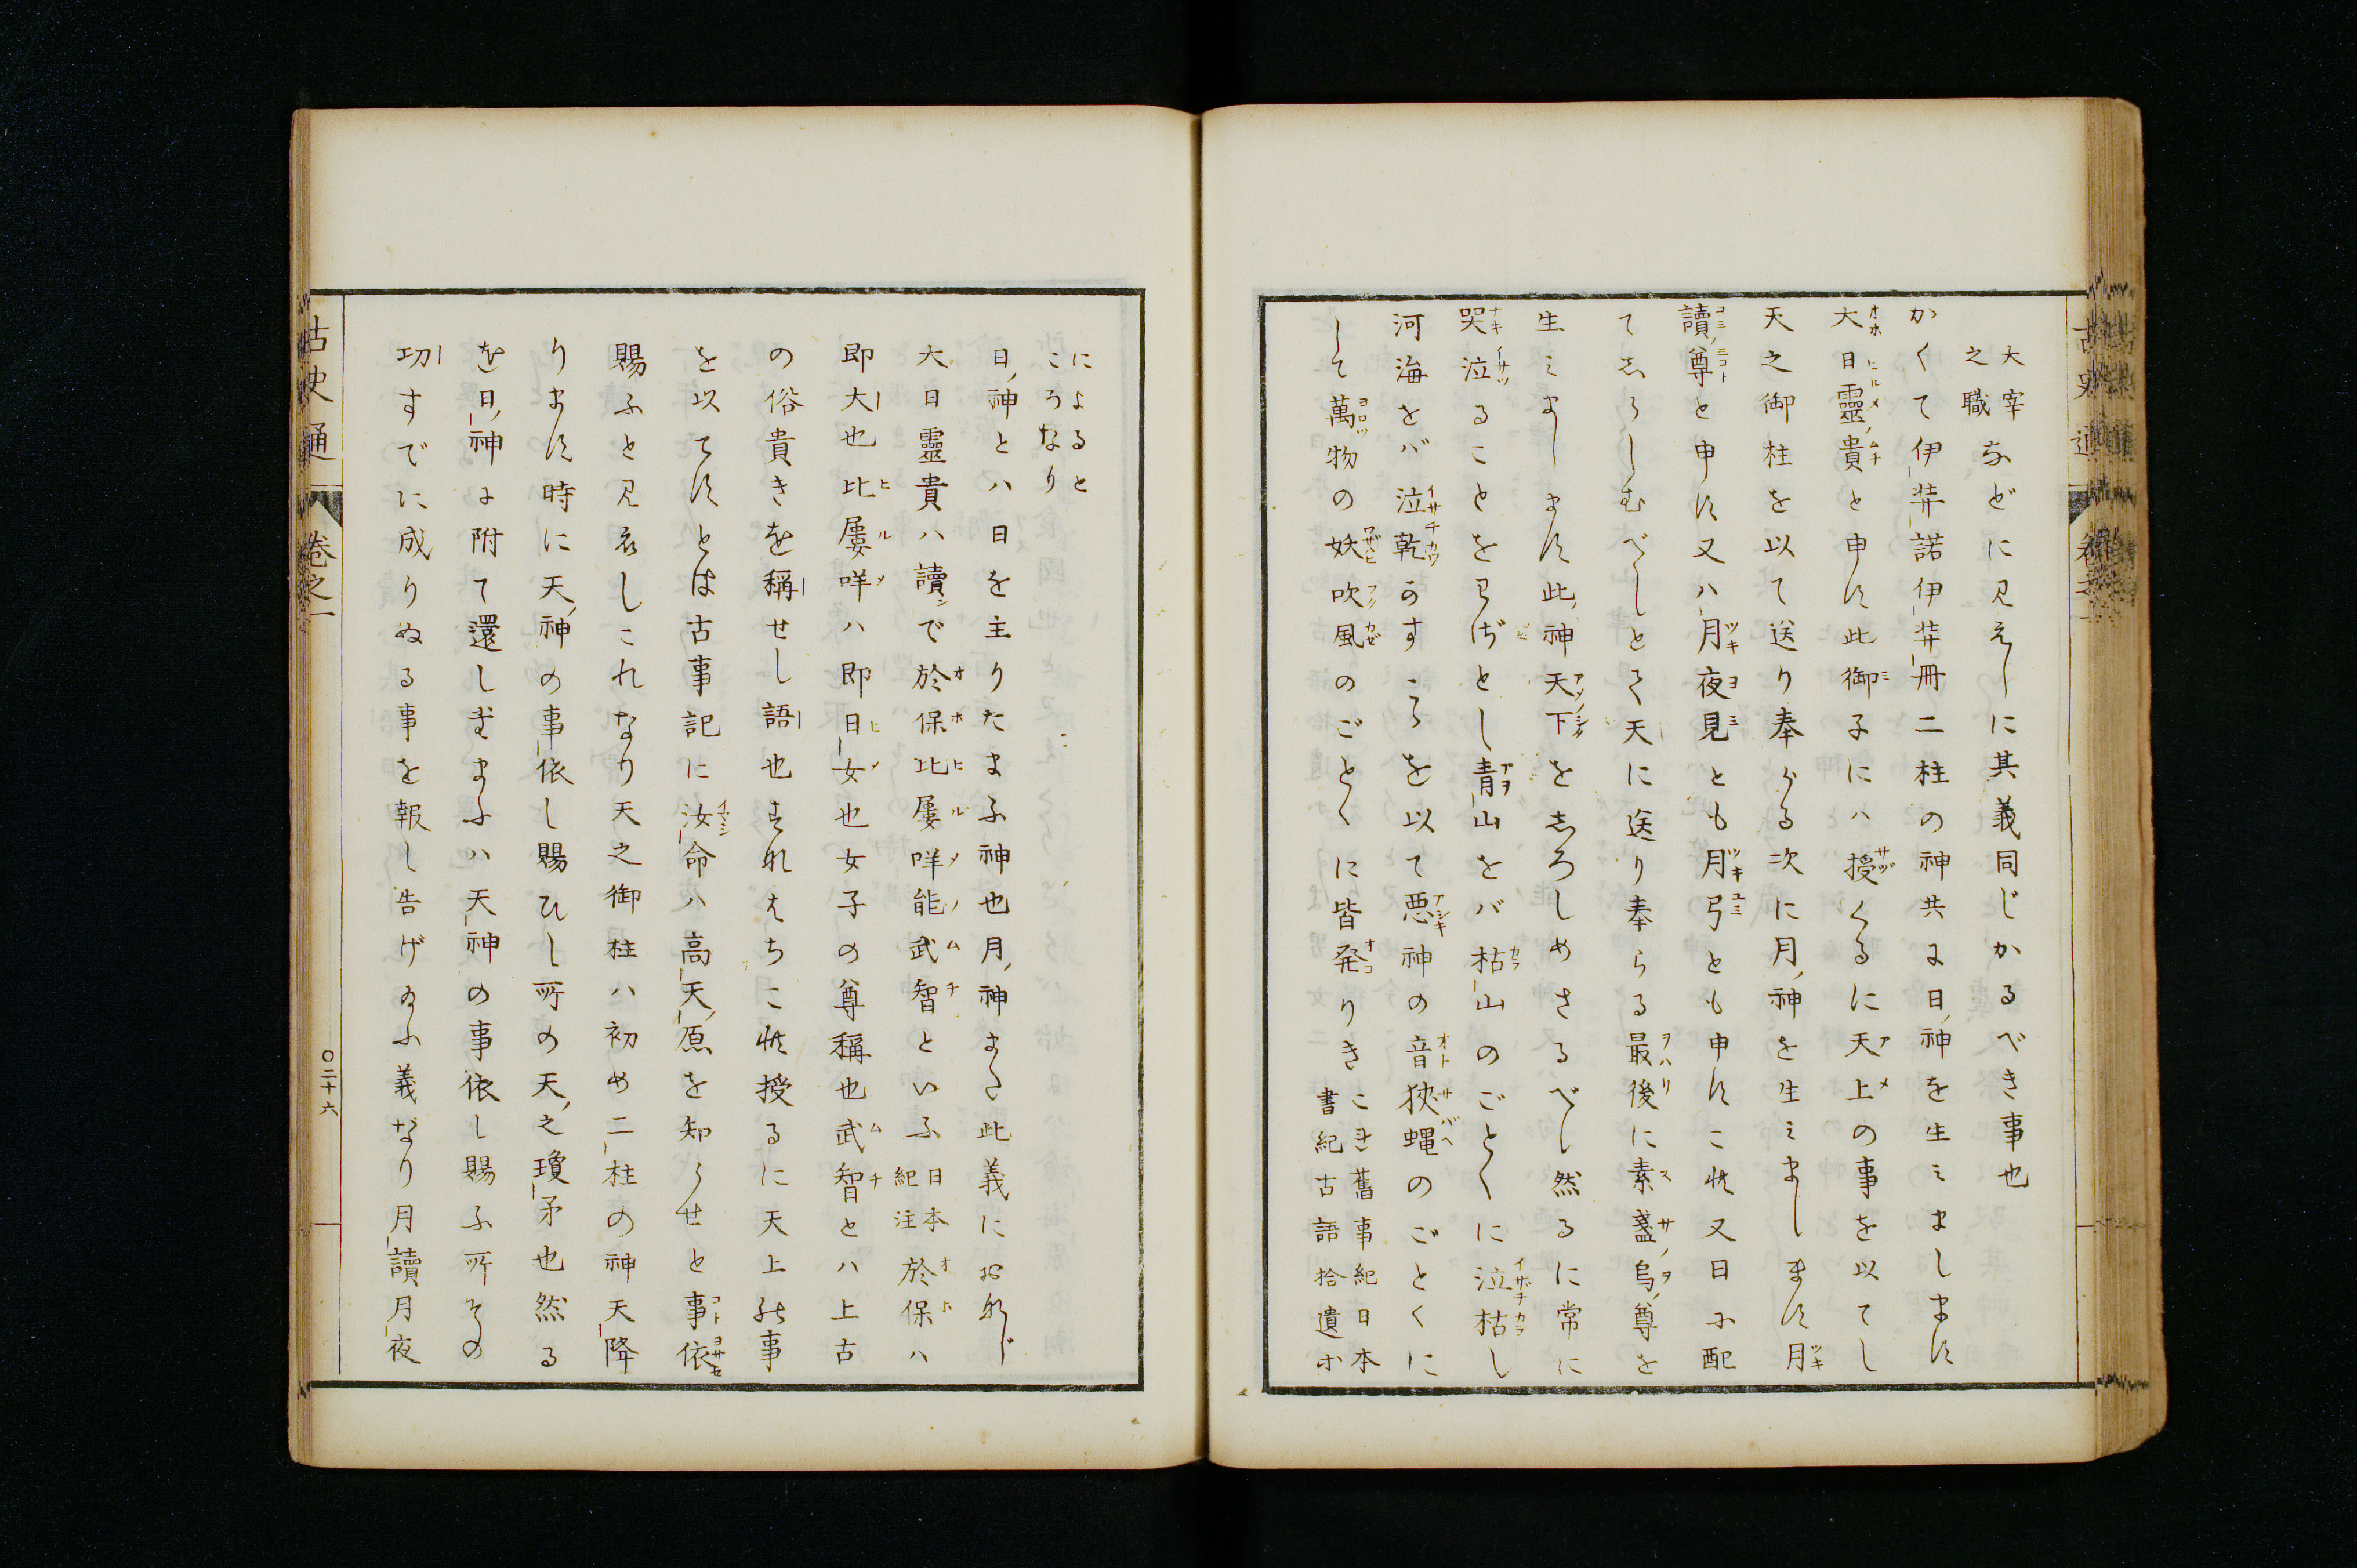 大宰
之職
などに見えしに其義同じかるべき事也
かくて伊弉諾伊弉冊二柱の神共に日神を生ミましまに
大日靈貴と申に此御子にハ授くるに天上の事を以てし
天之御柱を以て送り奉らる次に月神を生ミましまに月
讀尊と申に又ハ月夜見とも月弓とも申にこれ又日に配
てしらしむべしとて天に送り奉らる最後に素盞烏尊を
生ミましまに此神天下をしろしめさるべし然るに常に
哭泣ることをわざとし青山をバ枯山のごとくに泣枯し
河海をバ泣乾のすころを以て悪神の音狭蠅のごとくに
して萬物の妖吹風のごとくに皆発りき
これ舊事紀日本
書紀古語拾遺ホ
によると
ころなり
日神とハ日を主りたまふ神也月神また此義におなじ
大日靈貴ハ讀で於保比屢咩能武智といふ
日本
紀注
於保ハ
即大也比屢咩ハ即日女也女子の尊稱也武智とハ上古
の俗貴きを稱せし語也すなわちこれ授るに天上の事
を以てにとは古事記に汝命ハ高天原を知らせと事依
賜ふと見えしこれなり天之御柱ハ初め二柱の神天降
りまに時に天神の事依し賜ひし所の天之瓊矛也然る
を日神に附て還し玉まふハ天神の事依し賜ふ所その
功すでに成りぬる事を報し告げ給ふ義なり月讀月夜
古史通
巻之一
〇二十六